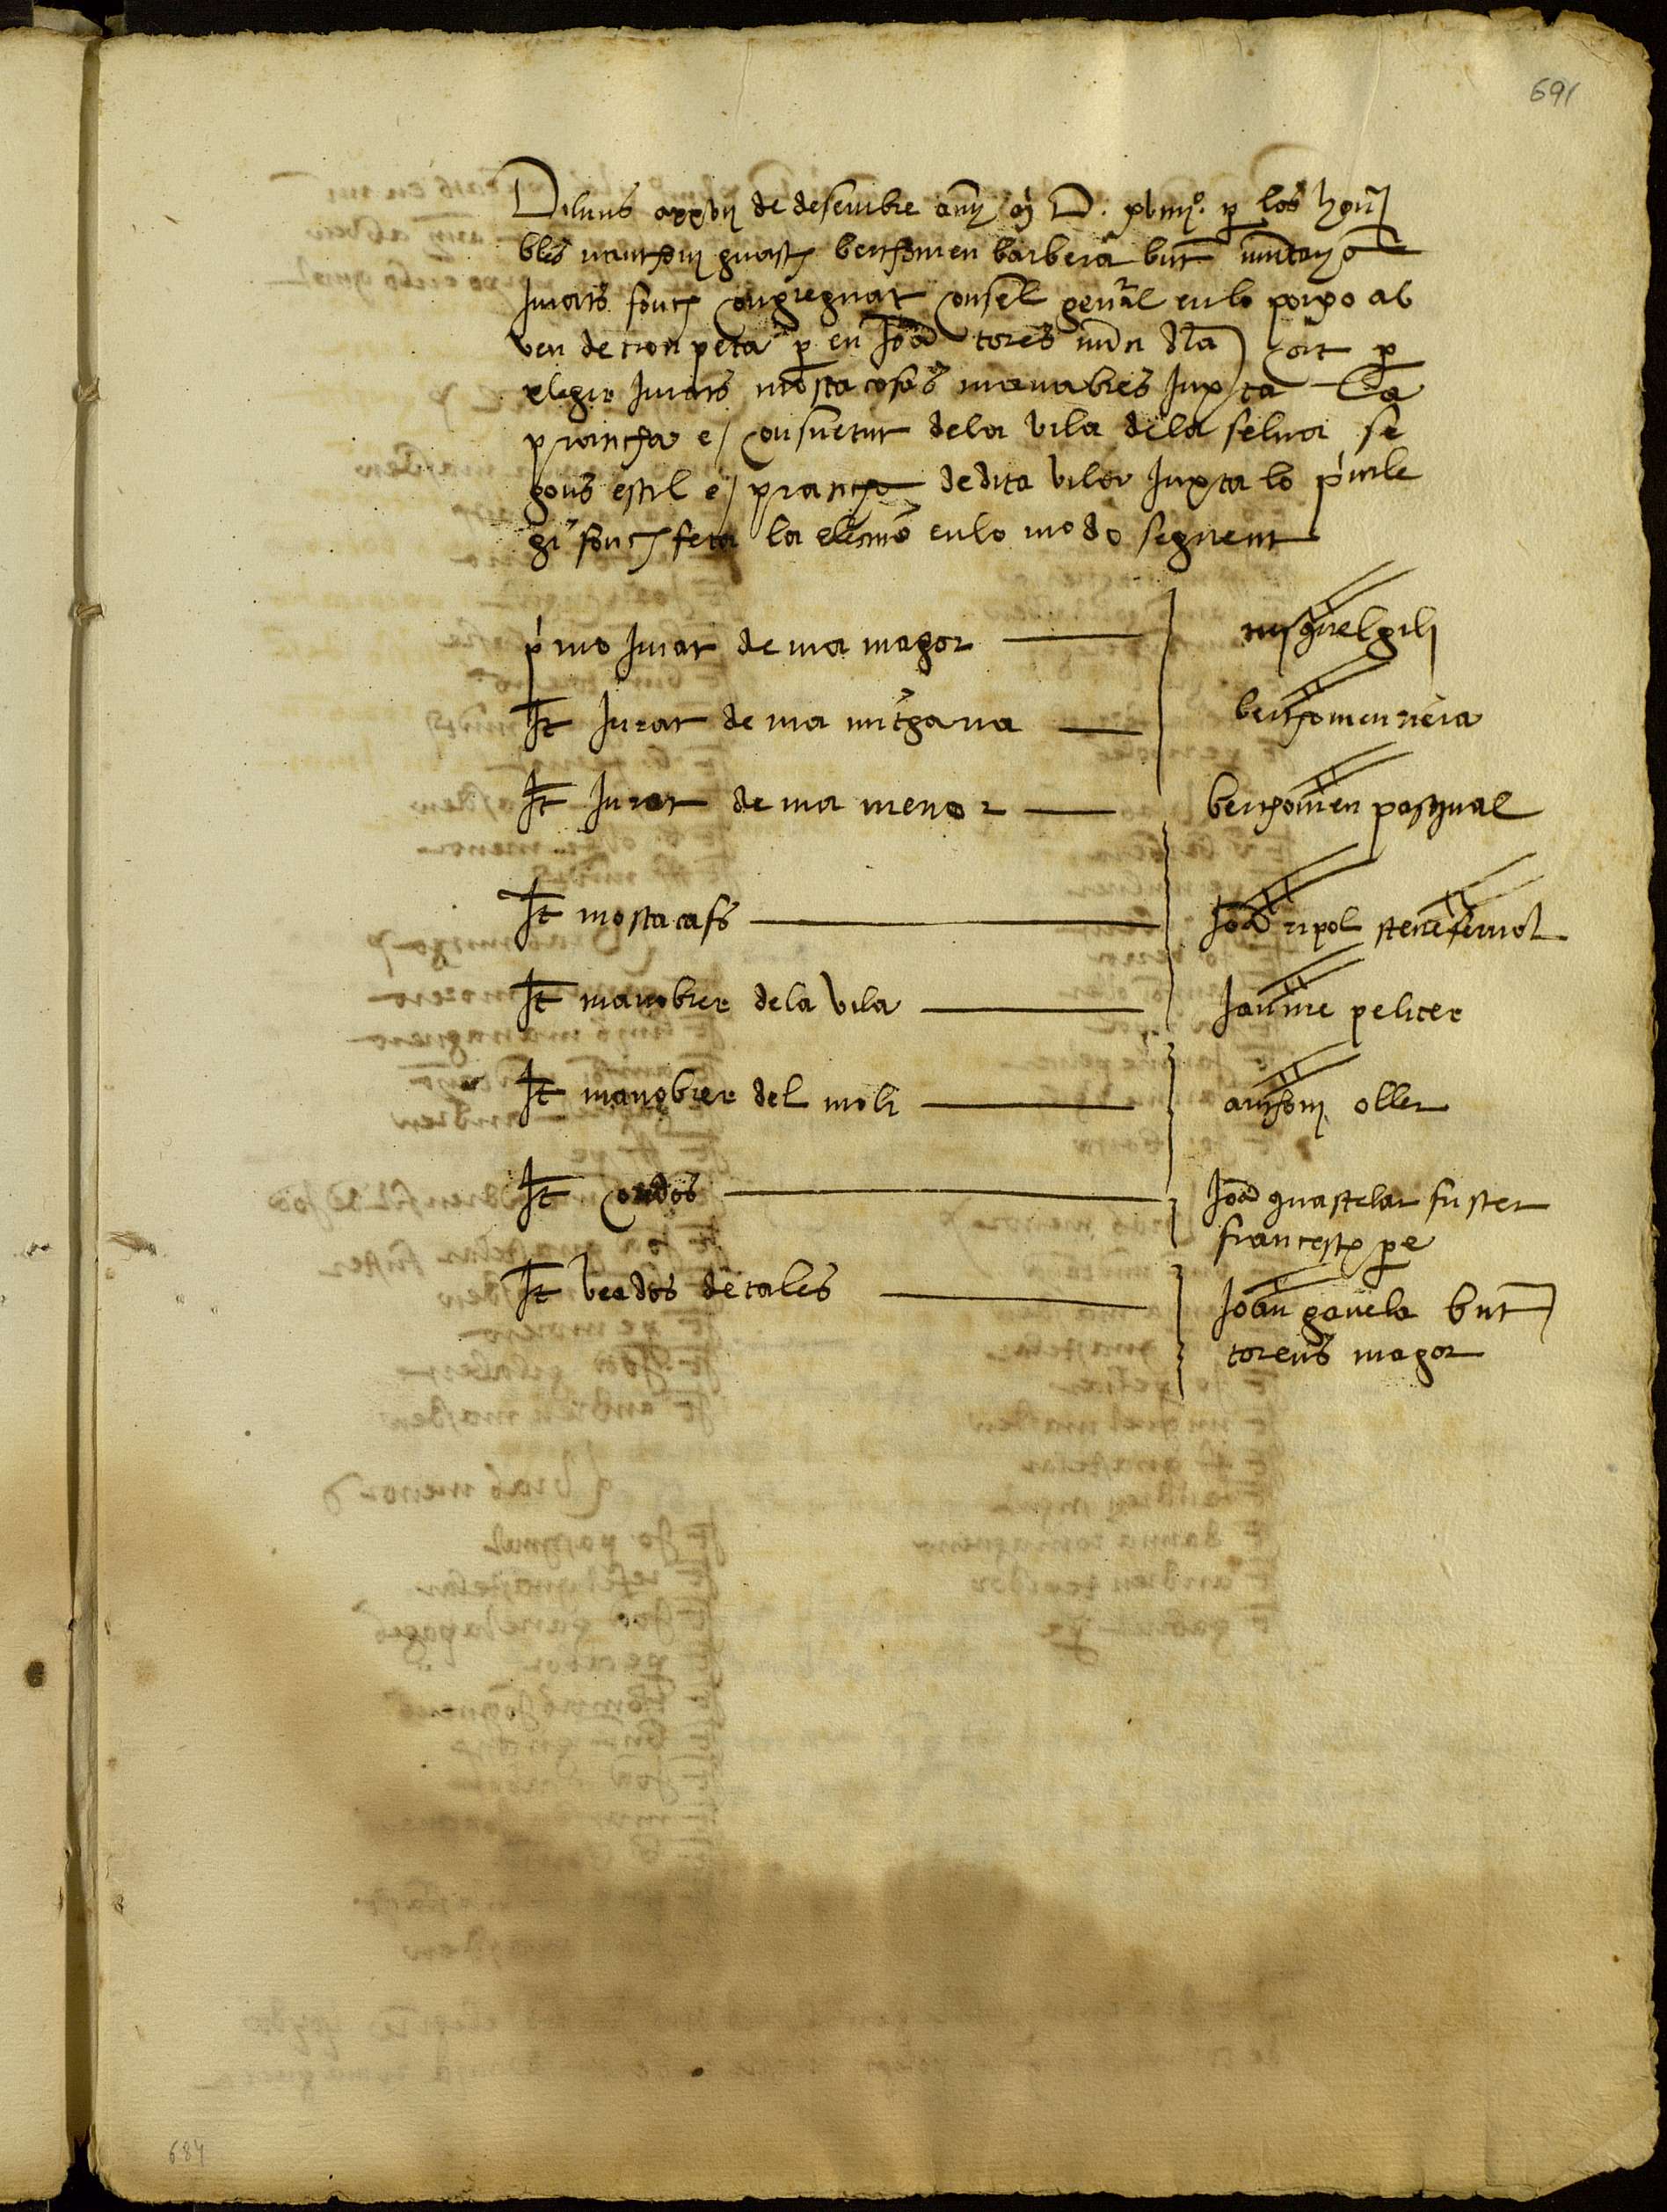 691
Diluns a xxvij de desembre any mj D. xviiijº. p los honr
bles nanthonj guasch berthomeu barbera but muntanyo
Jurats fonch congreguat consel general en lo porxo ab
veu de trompeta p en Joã tores nunci dla cort p
elegir Jurats mostacafs manobres Juxta la
pranctica e consuetut dela vila dela selva se
gons estil e pranctica de dita vila Juxta lo privile
gi fonch feta la electio en lo modo seguent
primo Jurat de ma magor miquel gili
It Jurat de ma mitgana berthomeu riera
It Jurat de ma menor berthomeu pasqual
It mostacafs Joã ripol steve ferriol
It manobrer dela vila Jaume pelicer
It manobrer del moli anthonj oller
It oidos Joã guastelar fuster
francesch pe
It veedos de tales Joan gavela but
torens magor
684